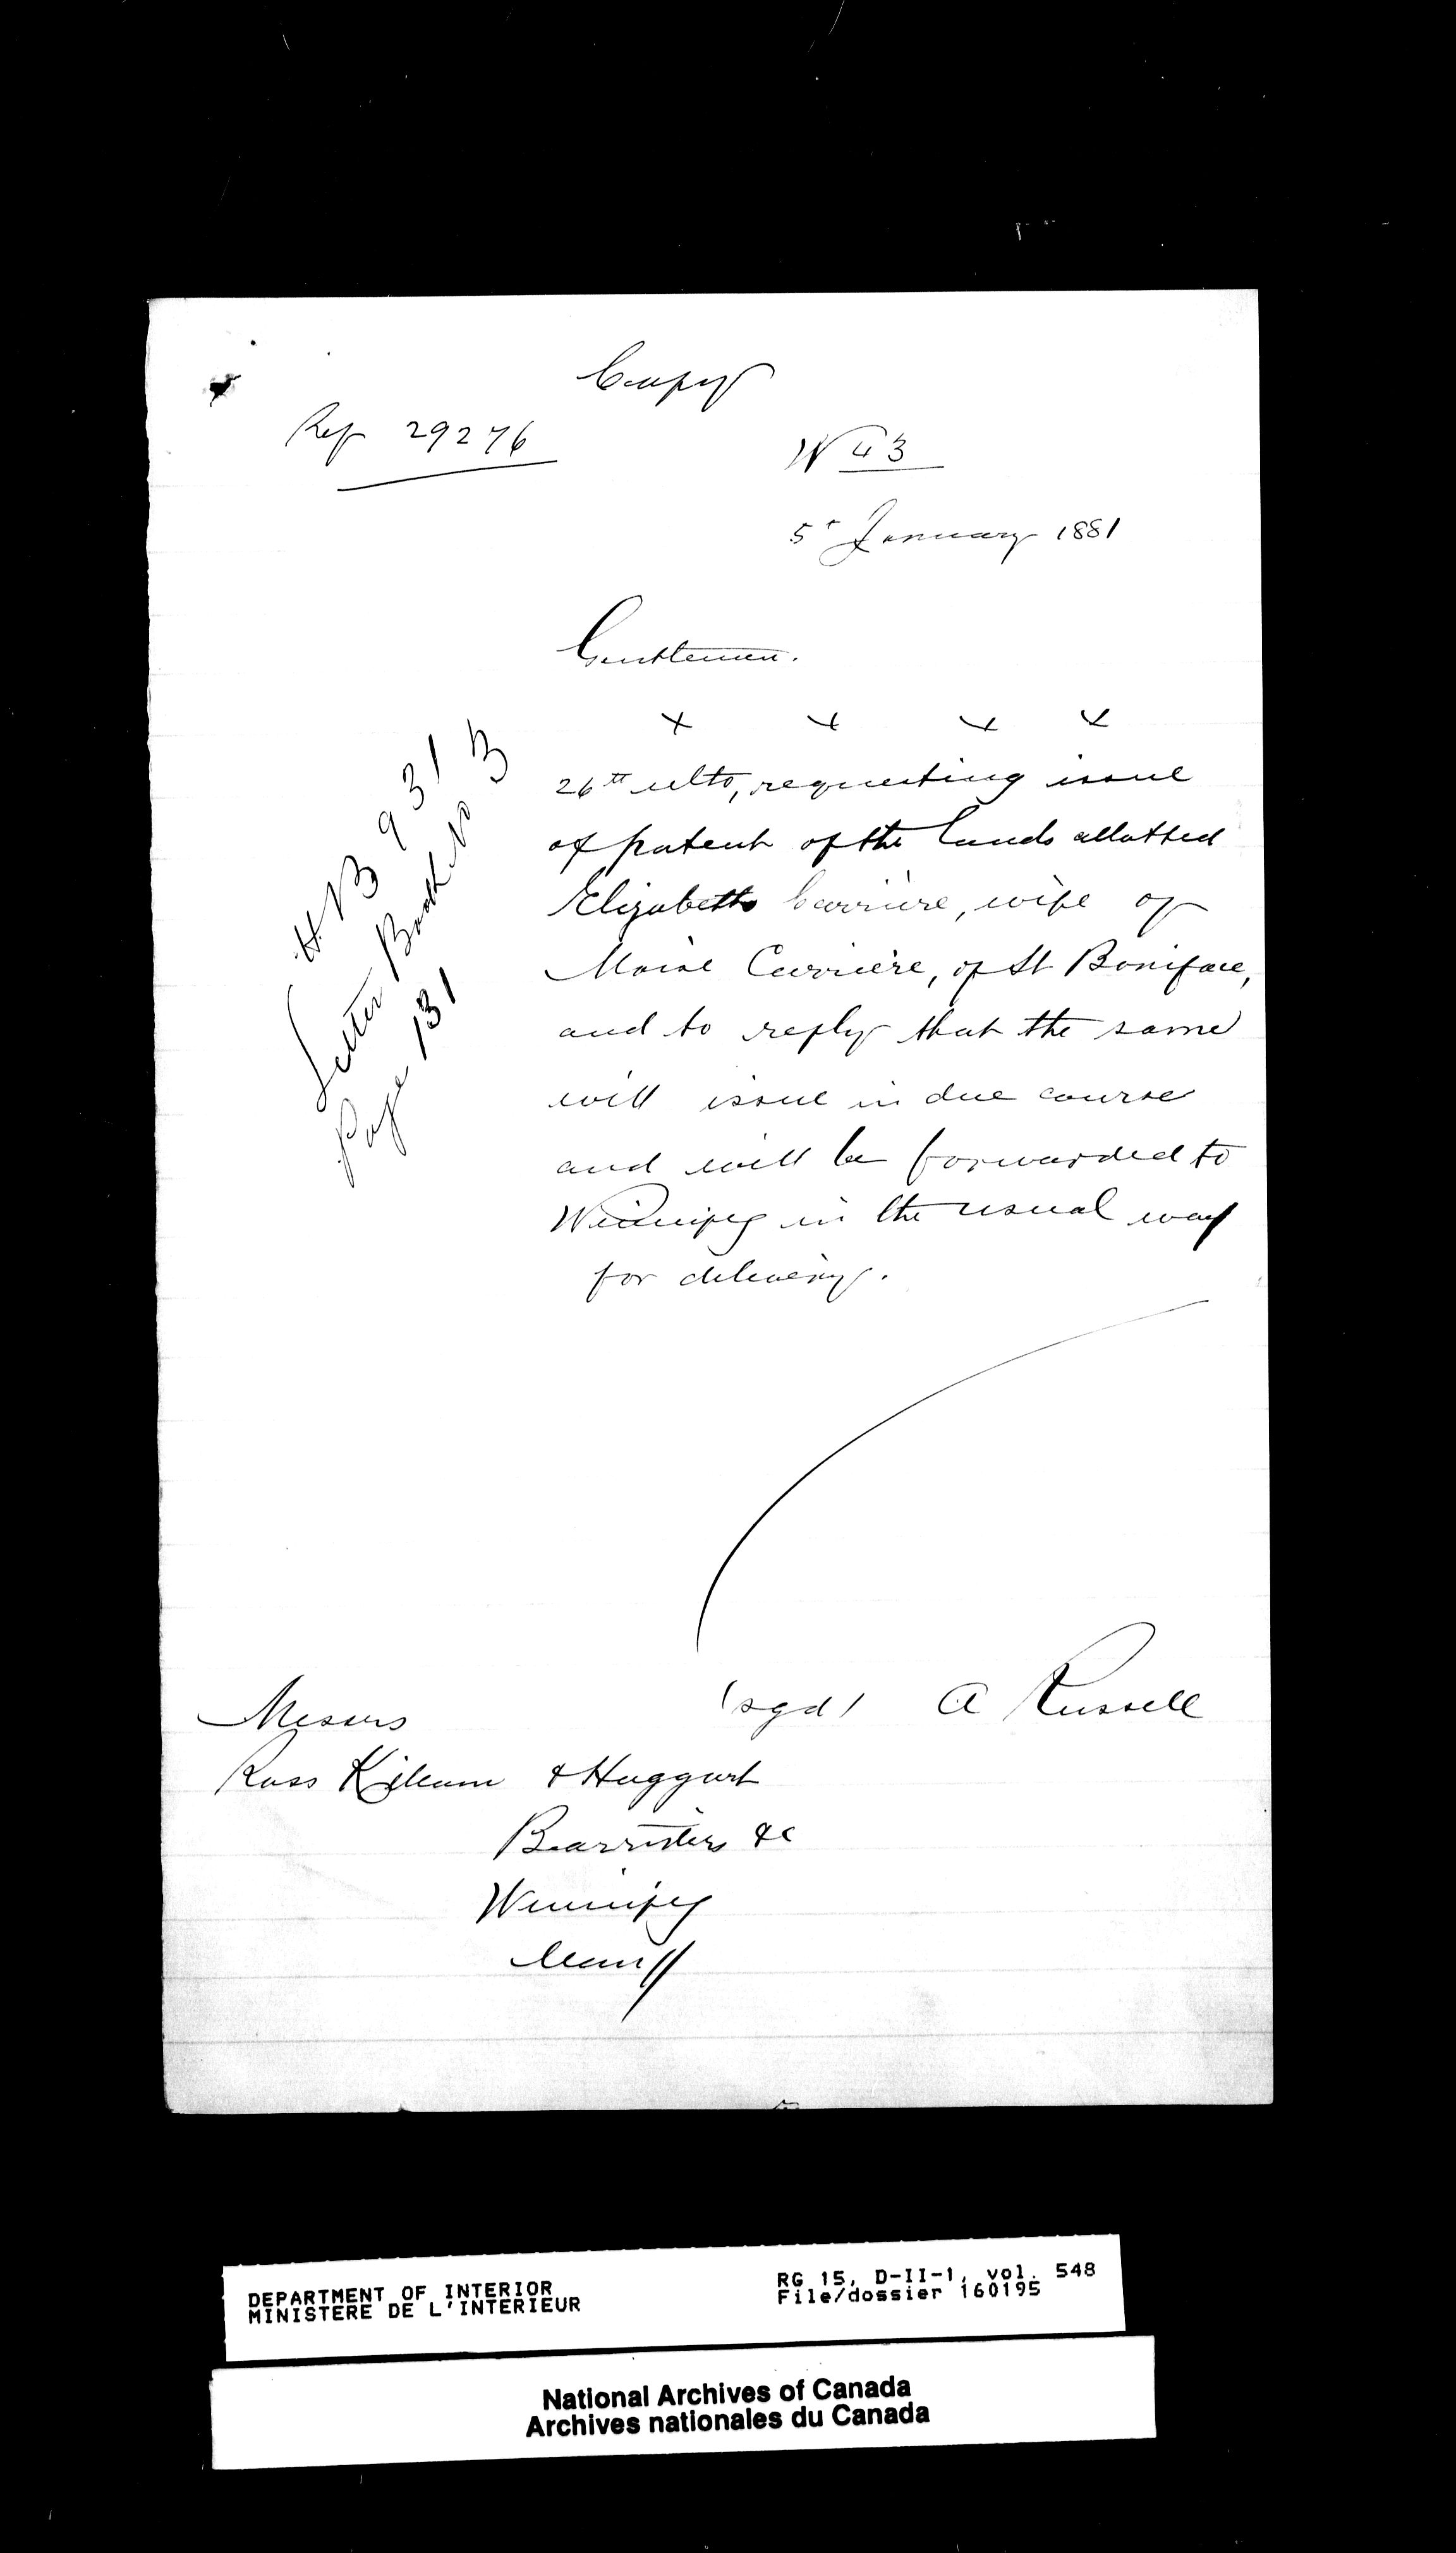 Copy
Ref 29276
W 43
5t January 1881
Gentlemen.
x x x x
26th ulto, requesting issue
of patent of the lands allotted
Elizabeth Carrière, wife of
Moise Carrière, of St Boniface,
and to reply that the same
will issue in due course
and will be forwarded to
Winnipeg in the usual way
for delivery.
HB 931
Letter Book No 3
Page 131
(sgd) A Russell
Messrs
Ross Killam & Haggart
Barristers &c
Winnipeg
Man
DEPARTMENT OF INTERIOR
MINISTERE DE L'INTERIEUR
RG 15, D-II-1, vol. 548
File/dossier 160195
National Archives of Canada
Archives nationales du Canada